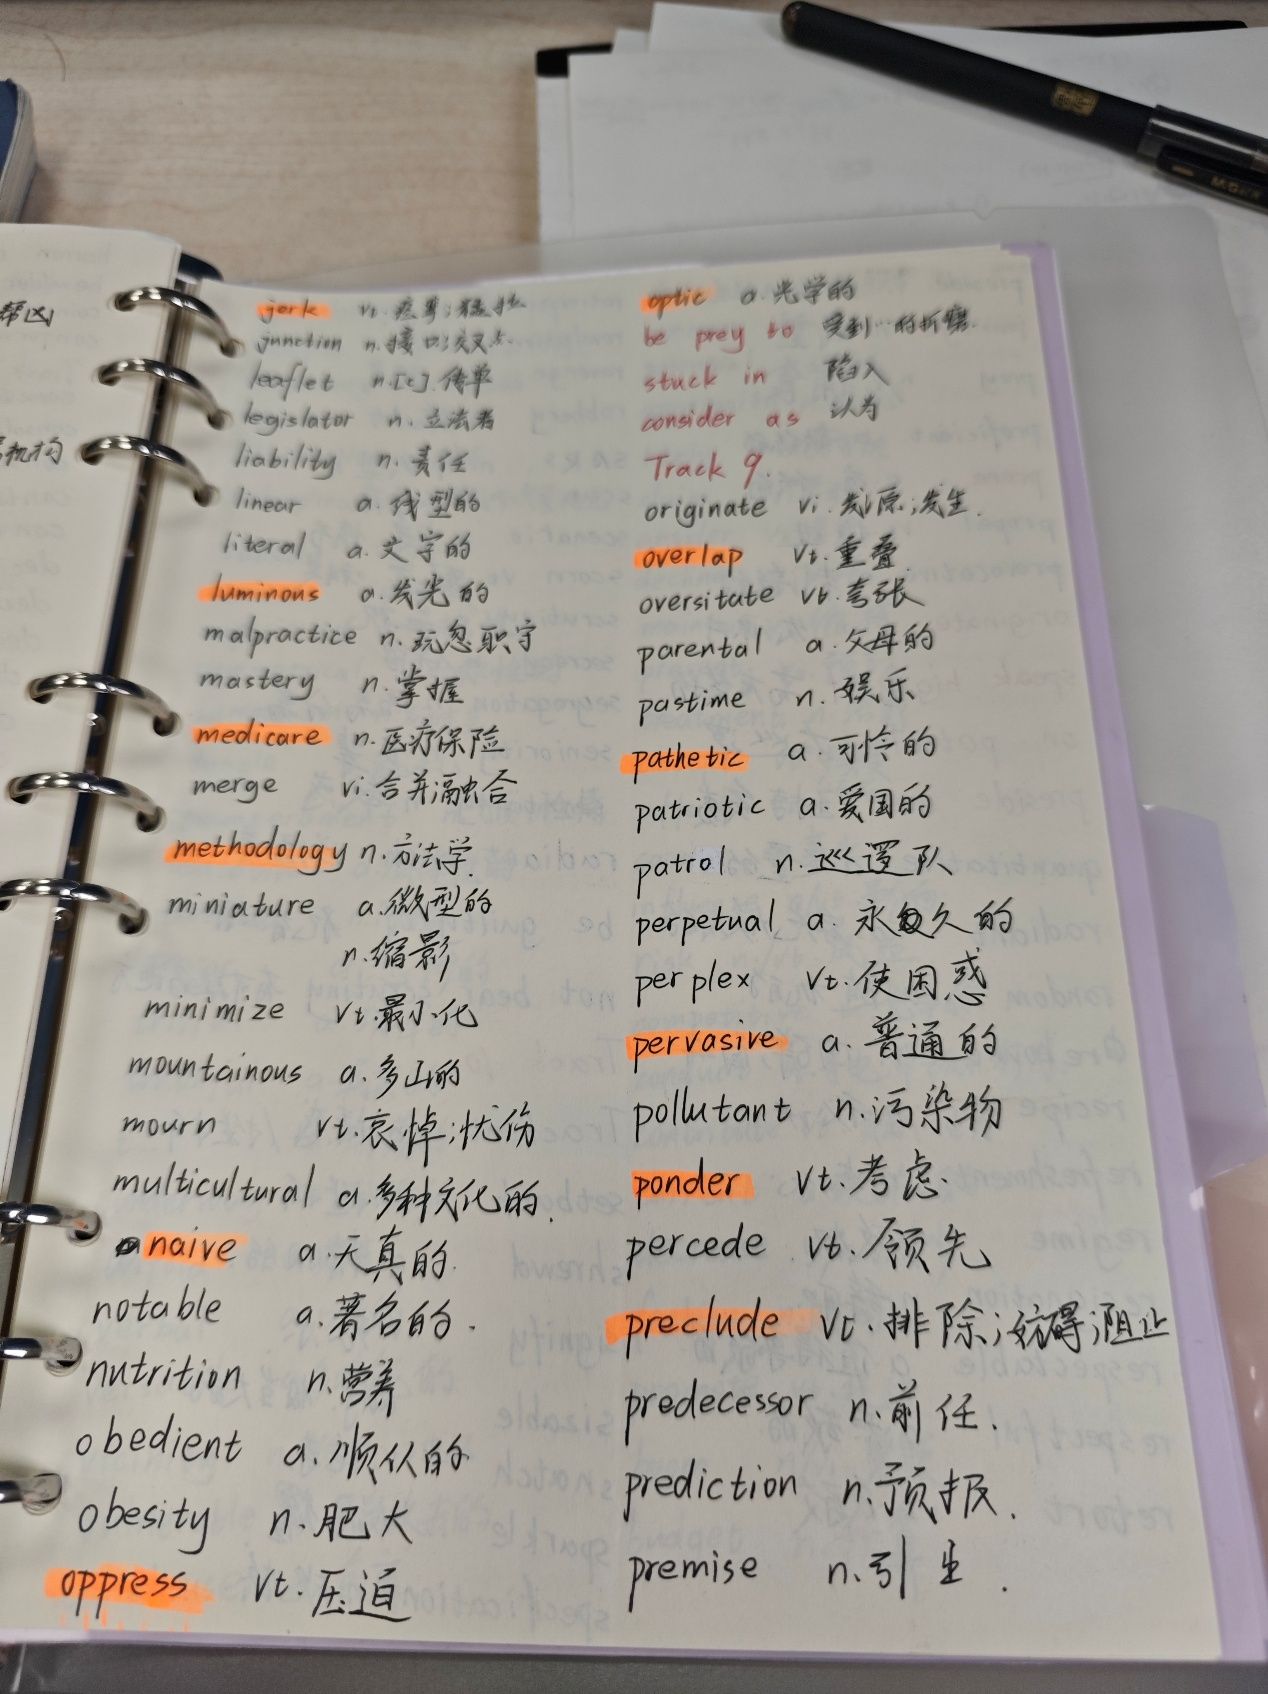 帮凶
机构
jerk vt. 痉挛;猛扯
junction n. 接口;交叉点
leaflet n.[c]. 传单
legislator n. 立法者
liability n. 责任
linear a. 线型的
literal a. 文字的
luminous a. 发光的
malpractice n. 玩忽职守
mastery n. 掌握
medicare n. 医疗保险
merge vi. 合并;融合
methodology n. 方法学.
miniature a. 微型的
n. 缩影
minimize vt. 最小化
mountainous a. 多山的
mourn vt. 哀悼;忧伤
multicultural a. 多种文化的.
naive a. 天真的.
notable a. 著名的.
nutrition n. 营养
obedient a. 顺从的
obesity n. 肥大
oppress vt. 压迫
optic a. 光学的
be prey to 受到…的折磨.
stuck in 陷入
consider as 认为
Track 9.
originate vi. 发源;发生.
overlap vt. 重叠.
oversitate vt. 夸张
parental a. 父母的
pastime n. 娱乐
pathetic a. 可怜的
patriotic a. 爱国的
patrol n. 巡逻队
perpetual a. 永久的
perplex vt. 使困惑
pervasive a. 普通的
pollutant n. 污染物
ponder vt. 考虑.
percede vt. 领先
preclude vt. 排除;妨碍;阻止
predecessor n. 前任.
prediction n. 预报.
premise n. 引生.